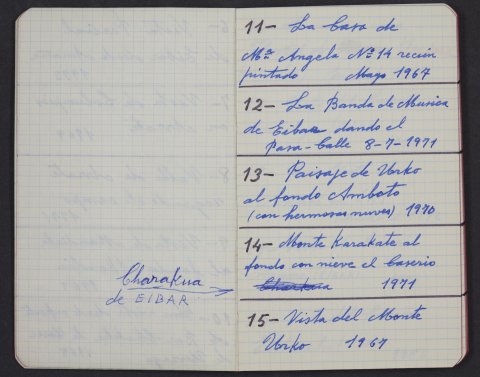 Charakua
de EIBAR
11- La Casa de
Mª Angela Nº 14 recien
pintado Mayo 1967
12- La Banda de Musica
de Eibar dando el
Pasa-Calle 8-7-1971
13- Paisaje de Urko
al fondo Amboto
(con hermosas nuves) 1970
14- Monte Karakate al
fondo con nieve el Caserio
Charkua 1971
15- Vista del Monte
Urko 1967